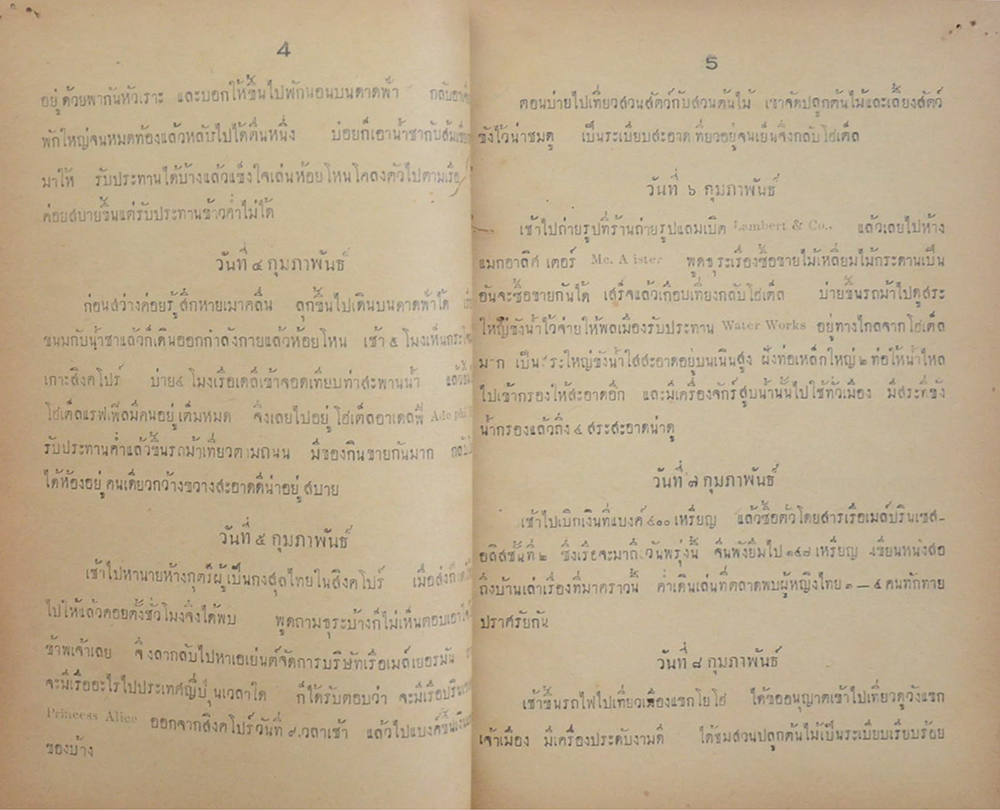 4
อยู่ด้วยพากันหัวเราะ และบอกให้ขึ้นไปพักนอนบนดาดฟ้า กลับอาเจียน
พักใหญ่จนหมดท้องแล้วหลับไปได้ตื่นหนึ่ง บ๋อยก็เอาน้ำชากับส้มเขียว
มาให้ รับประทานได้บ้างแล้วแข็งใจเล่นห้อยโหนโคลงตัวไปตามเรือ
ค่อยสบายขึ้นแต่รับประทานข้าวค่ำไม่ได้
วันที่ ๔ กุมภาพันธ์
ก่อนสว่างค่อยรู้สึกหายเมาคลื่น ลุกขึ้นไปเดินบนดาดฟ้าได้
ขนมกับน้ำชาแล้วก็เดินออกกำลังกายแล้วห้อยโหน เช้า ๕ โมงเห็นกระโจม
เกาะสิงคโปร์ บ่าย ๔ โมงเรือเดลีเข้าจอดเทียบท่าสะพานน้ำ แล้ว
โฮเต็ลแรฟเฟิลมีคนอยู่เต็มหมด จึงเลยไปอยู่โฮเต็ลอาเดลฟี Adelphi
รับประทานค่ำแล้วขึ้นรถม้าเที่ยวตามถนน มีของกินขายกันมาก
ได้ห้องอยู่คนเดียวกว้างขวางสะอาดดีน่าอยู่สบาย
วันที่ ๕ กุมภาพันธ์
เช้าไปหานายห้างกุตรีผู้เป็นกงสุลไทยในสิงคโปร์ เมื่อส่ง
ไปให้แล้วคอยตั้งชั่วโมงจึงได้พบ พูดถามธุระบ้างก็ไม่เห็นตอบเอาใจ
ข้าพเจ้าเลย จึงลากลับไปหาเอเย่นต์จัดการบริษัทเรือเมล์เยอรมัน
จะมีเรืออะไรไปประเทศญี่ปุ่นเวลาใด ก็ได้รับตอบว่า จะมีเรือปรินเซส
Princess Alice ออกจากสิงคโปร์วันที่ ๙ เวลาเช้า แล้วไปแบงค์ขึ้นเงิน
ของบ้าง
5
ตอนบ่ายไปเที่ยวสวนสัตว์กับสวนต้นไม้ เขาจัดปลูกต้นไม้และเลี้ยงสัตว์
ขังไว้น่าชมดู เป็นระเบียบสะอาด เที่ยวอยู่จนเย็นจึงกลับโฮเต็ล
วันที่ ๖ กุมภาพันธ์
เช้าไปถ่ายรูปที่ร้านถ่ายรูปแลมเบิต Lambert & Co., แล้วเลยไปห้าง
แมกอาลิศเตอร์ Mc. A ister พูดธุระเรื่องซื้อขายไม้เหลี่ยมไม้กระดานเป็น
อันจะซื้อขายกันได้ เสร็จแล้วเกือบเที่ยงกลับโฮเต็ล บ่ายขึ้นรถม้าไปดูสระ
ใหญ่ขังน้ำไว้จ่ายให้พลเมืองรับประทาน Water Works อยู่ทางไกลจากโฮเต็ล
มาก เป็นสระใหญ่ขังน้ำใสสะอาดอยู่บนเนินสูง ฝังท่อเหล็กใหญ่ ๒ ท่อให้น้ำไหล
ไปเข้ากรองให้สะอาดอีก และมีเครื่องจักร์สูบน้ำนั้นไปใช้ทั่วเมือง มีสระที่ขัง
น้ำกรองแล้วถึง ๔ สระสะอาดน่าดู
วันที่ ๗ กุมภาพันธ์
เช้าไปเบิกเงินที่แบงค์ ๔๐๐ เหรียญ แล้วซื้อตั๋วโดยสารเรือเมล์ปรินเซส-
อลิสชั้นที่ ๒ ซึ่งเรือจะมาถึงวันพรุ่งนี้ ขึ้นพังยิมไป ๑๔๘ เหรียญ เขียนหนังสือ
ถึงบ้านเล่าเรื่องที่มาคราวนี้ ค่ำเดินเล่นที่ตลาดพบผู้หญิงไทย ๓ — ๔ คนทักทาย
ปราศรัยกัน
วันที่ ๘ กุมภาพันธ์
เช้าขึ้นรถไฟไปเที่ยวเมืองแขกโยโฮ่ ได้ขออนุญาตเข้าไปเที่ยวดูวังแขก
เจ้าเมือง มีเครื่องประดับงามดี ได้ชมสวนปลูกต้นไม้เป็นระเบียบเรียบร้อย